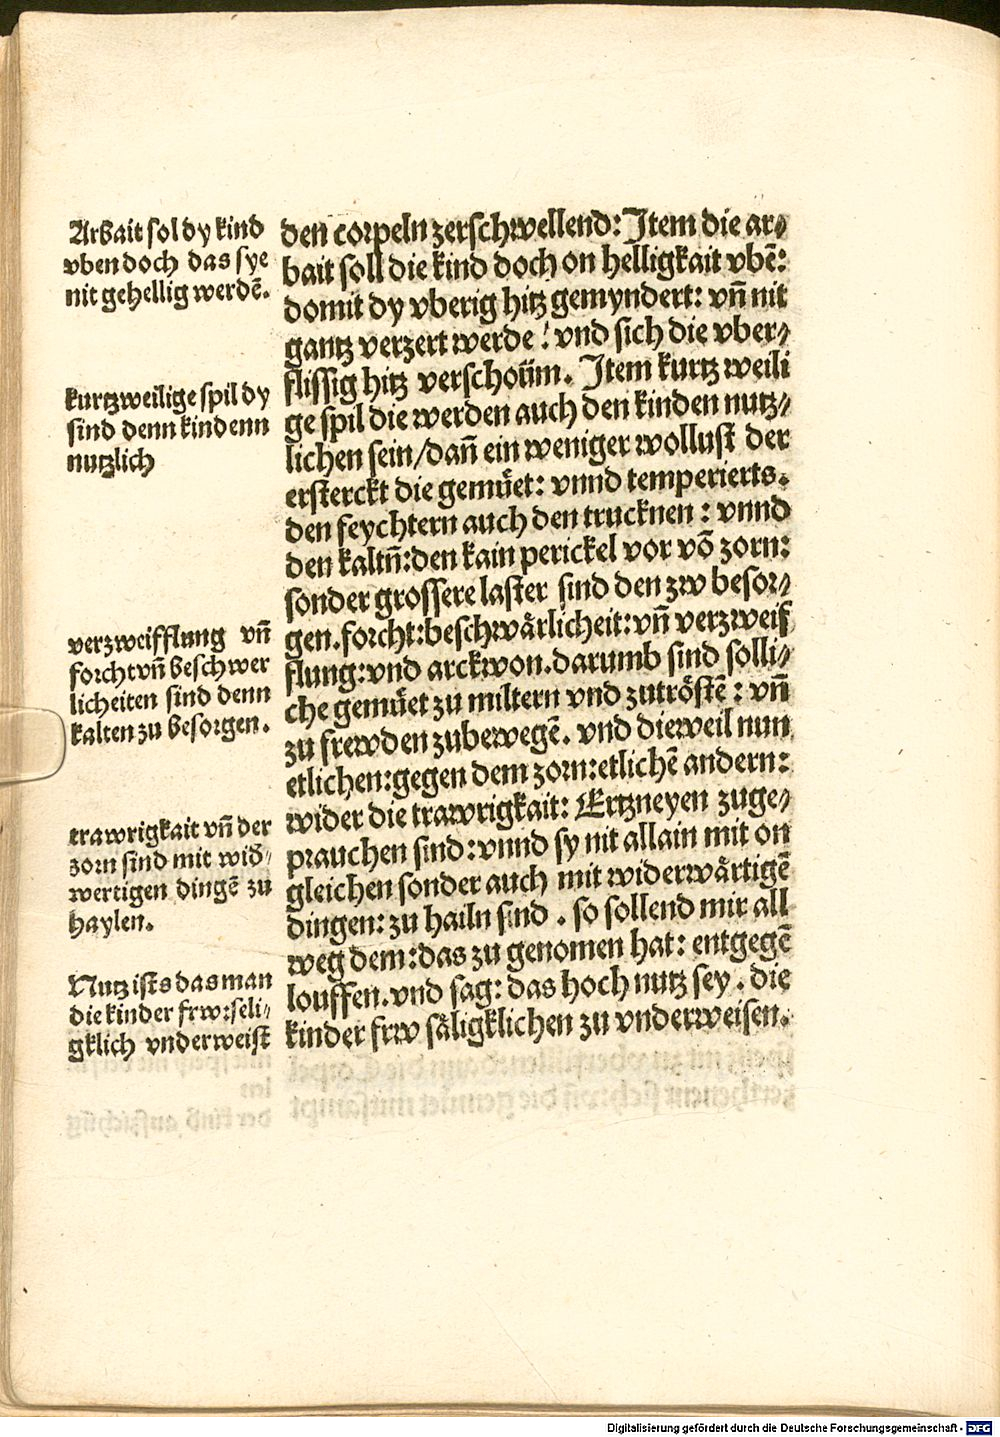 Arbait sol dy kind
vben doch das sye
nit gehellig werdē.
kurtzweilige spil dy
sind denn kindenn
nutzlich
verzweifflung vn̄
forcht vn̄ beschwer
licheiten sind denn
kalten zu besorgen.
trawrigkait vn̄ der
zorn sind mit wid⸗
wertigen dingē zu
haylen.
Nutz ists das man
die kinder frw:seli⸗
gklich vnderweist
den corpeln zerschwellend: Item die ar⸗
bait soll die kind doch on helligkait vbē:
domit dy vberig hitz gemyndert: vn̄ nit
gantz verzert werde: vnd sich die vber⸗
flissig hitz verschoům. Item kurtz weili
ge spil die werden auch den kinden nutz⸗
lichen sein/dan̄ ein weniger wollust der
ersterckt die gemuͤet: vnnd temperierts.
den feychtern auch den trucknen: vnnd
den kaltn̄:den kain perickel vor vō zorn:
sonder grossere laster sind den zw besor⸗
gen.forcht:beschwaͤrlicheit:vn̄ verzweif
flung:vnd arckwon.darumb sind solli⸗
che gemuͤet zu miltern vnd zutroͤstē: vn̄
zu frewden zubewegē. vnd dierweil nun
etlichen:gegen dem zorn:etlichē andern:
wider die trawrigkait: Ertzneyen zuge⸗
prauchen sind:vnnd sy nit allain mit on
gleichen sonder auch mit widerwaͤrtigē
dingen: zu hailn sind. so sollend mir all
weg dem:das zu genomen hat: entgegē
louffen.vnd sag: das hoch nutz sey. die
kinder frw saͤligklichen zu vnderweisen.
Digitalisierung gefördert durch die Deutsche Forschungsgemeinschaft - DFG